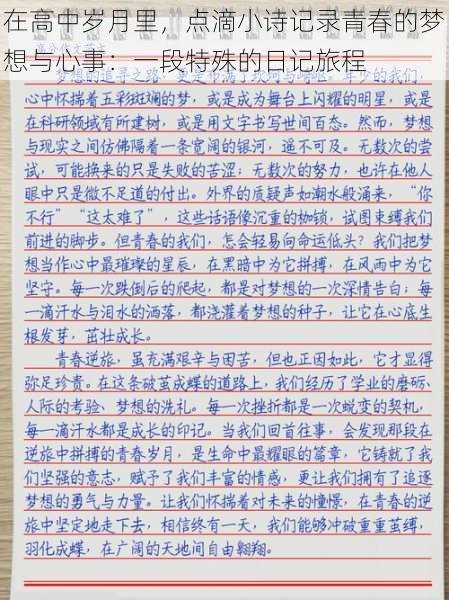 在高中岁月里，点滴小诗记录青春的梦
想与心事：一段特殊的日记旅程
梦想的追寻之路，更是布满了坎坷与崎岖。年少的我们，
心中怀揣着五彩斑斓的梦，或是成为舞台上闪耀的明星，或是
在科研领域有所建树，或是用文字书写世间百态。然而，梦想
与现实之间仿佛隔着一条宽阔的银河，遥不可及。无数次的尝
试，可能换来的只是失败的苦涩；无数次的努力，也许在他人
眼中只是微不足道的付出。外界的质疑声如潮水般涌来，“你
不行”“这太难了”，这些话语像沉重的枷锁，试图束缚我们
前进的脚步。但青春的我们，怎会轻易向命运低头？我们把梦
想当作心中最璀璨的星辰，在黑暗中为它拼搏，在风雨中为它
坚守。每一次跌倒后的爬起，都是对梦想的一次深情告白；每
一滴汗水与泪水的洒落，都浇灌着梦想的种子，让它在心底生
根发芽，茁壮成长。
青春逆旅，虽充满艰辛与困苦，但也正因如此，它才显得
弥足珍贵。在这条破茧成蝶的道路上，我们经历了学业的磨砺、
人际的考验、梦想的洗礼。每一次挫折都是一次蜕变的契机，
每一滴汗水都是成长的印记。当我们回首往事，会发现那段在
逆旅中拼搏的青春岁月，是生命中最耀眼的篇章，它铸就了我
们坚强的意志，赋予了我们丰富的情感，更让我们拥有了追逐
梦想的勇气与力量。让我们怀揣着对未来的憧憬，在青春的逆
旅中坚定地走下去，相信终有一天，我们能够冲破重重茧缚，
羽化成蝶，在广阔的天地间自由翱翔。